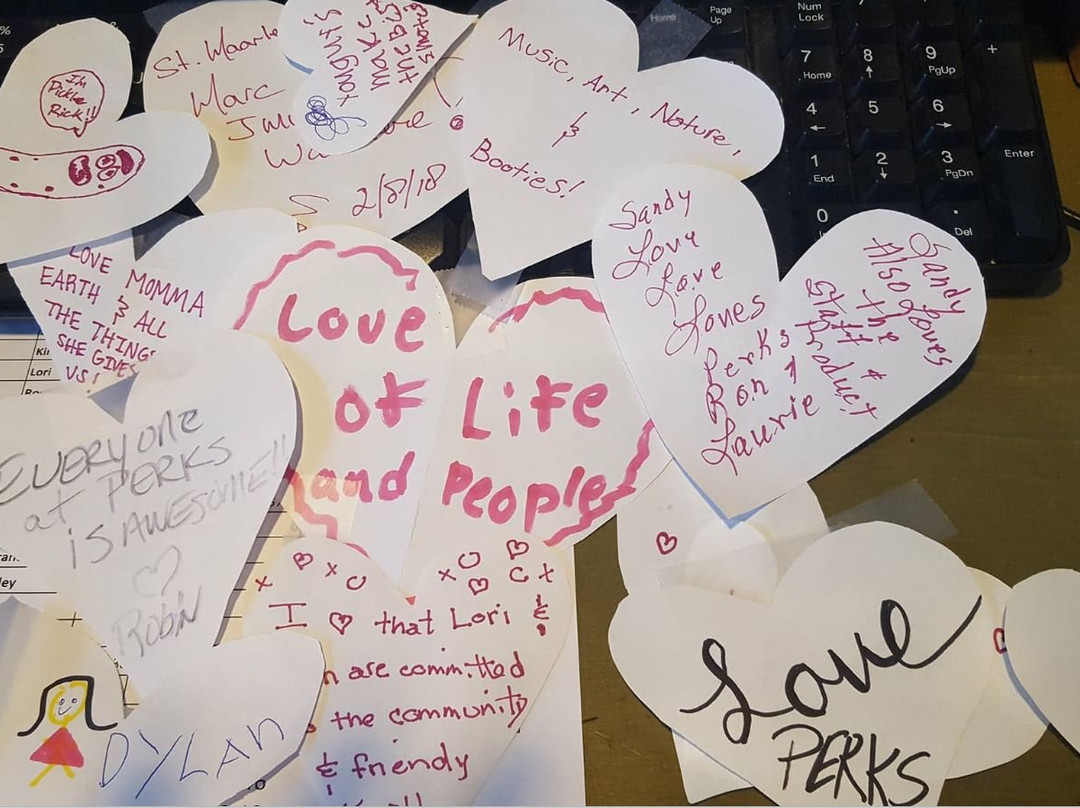 I'm
Pickle
Rick!!
St. Maarte
Marc
Jmi
Wa
2/8/18
Music, Art, Nature,
&
Booties!
LOVE MOMMA
EARTH & ALL
THE THINGS
SHE GIVES
US!
Love
of Life
and People
Sandy
Love
Love
Loves
Perks
Ron &
Laurie
Sandy
Also Loves
the
Staff &
Product
EVERYONE
at PERKS
is AWESOME!!
Robin
x x o
x o o x
I ♡ that Lori &
n are committed
the community
& friendly
DYLAN
Love
PERKS
Num
Lock
Home
Page
Up
7
Home
8
9
PgUp
+
4
5
6
1
End
2
3
PgDn
Enter
0
.
Del
%
5
Lori
ley